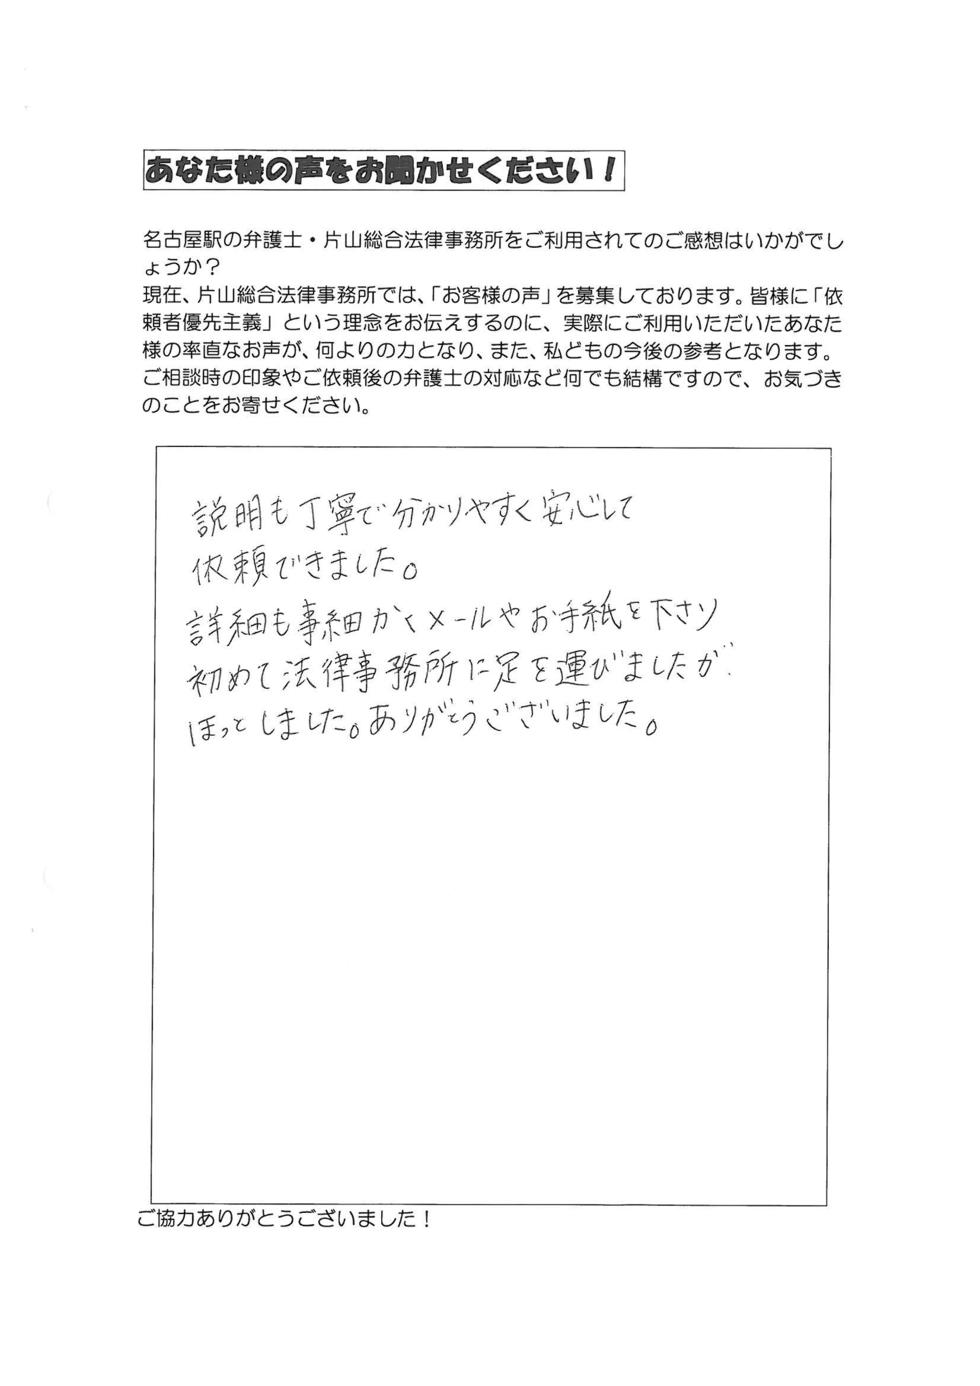 あなた様の声をお聞かせください！
名古屋駅の弁護士・片山総合法律事務所をご利用されてのご感想はいかがでし
ょうか？
現在、片山総合法律事務所では、「お客様の声」を募集しております。皆様に「依
頼者優先主義」という理念をお伝えするのに、実際にご利用いただいたあなた
様の率直なお声が、何よりの力となり、また、私どもの今後の参考となります。
ご相談時の印象やご依頼後の弁護士の対応など何でも結構ですので、お気づき
のことをお寄せください。
説明も丁寧で分かりやすく安心して
依頼できました。
詳細も事細かくメールやお手紙を下さり
初めて法律事務所に足を運びましたが
ほっとしました。ありがとうございました。
ご協力ありがとうございました！